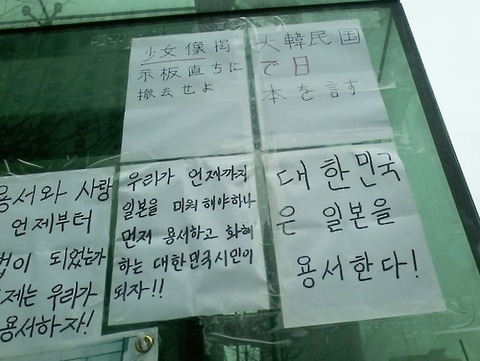 少女像掲
示板直ちに
撤去せよ
大韓民国
で日
本を許す
용서와 사랑
언제부터
법이 되었는가
이제는 우리가
용서하자!
우리가 언제까지
일본을 미워해야하나
먼저 용서하고 화해
하는 대한민국시민이
되자!!
대한민국
은 일본을
용서한다!